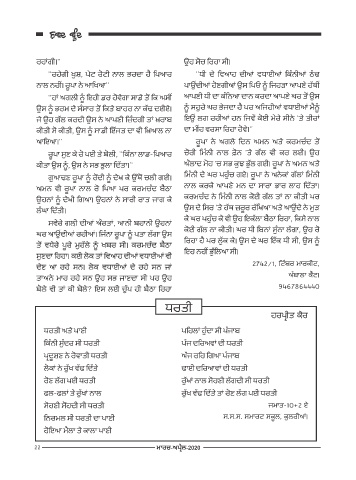 ਰਹਾਂਗੀ।"
"ਰਹੇਗੀ ਖੁਸ਼, ਪੇਟ ਰੋਟੀ ਨਾਲ ਭਰਦਾ ਹੈ ਪਿਆਰ
ਨਾਲ ਨਹੀਂ।" ਰੂਪਾ ਨੇ ਆਖਿਆ।
"ਹਾਂ ਅਗਲੀ ਨੂੰ ਇਹੀ ਡਰ ਹੋਵੇਗਾ ਸਾਡੇ ਤੋਂ ਕਿ ਅਸੀਂ
ਉਸ ਨੂੰ ਭਰਮ ਦੇ ਸੰਸਾਰ ਤੋਂ ਕਿਤੇ ਬਾਹਰ ਨਾ ਕੱਢ ਦਈਏ।
ਜੋ ਉਹ ਗੱਲ ਕਰਦੀ ਉਸ ਨੇ ਆਪਣੀ ਜ਼ਿੰਦਗੀ ਤਾਂ ਖ਼ਰਾਬ
ਕੀਤੀ ਸੋ ਕੀਤੀ, ਉਸ ਨੂੰ ਸਾਡੀ ਇੱਜਤ ਦਾ ਵੀ ਖ਼ਿਆਲ ਨਾ
ਆਇਆ।"
ਰੂਪਾ ਸੁਣ ਕੇ ਰੋ ਪਈ ਤੇ ਬੋਲੀ, "ਕਿੰਨਾ ਲਾਡ-ਪਿਆਰ
ਕੀਤਾ ਉਸ ਨੂੰ, ਉਸ ਨੇ ਸਭ ਭੁਲਾ ਦਿੱਤਾ।"
ਗੁਆਂਢਣ ਰੂਪਾ ਨੂੰ ਰੋਂਦੀ ਨੂੰ ਦੇਖ ਕੇ ਉੱਥੋਂ ਚਲੀ ਗਈ।
ਅਮਨ ਵੀ ਰੂਪਾ ਨਾਲ ਰੋ ਪਿਆ ਪਰ ਕਰਮਚੰਦ ਬੈਠਾ
ਉਹਨਾਂ ਨੂੰ ਦੇਖੀ ਗਿਆ। ਉਹਨਾਂ ਨੇ ਸਾਰੀ ਰਾਤ ਜਾਗ ਕੇ
ਲੰਘਾ ਦਿੱਤੀ।
ਸਵੇਰੇ ਗਲੀ ਦੀਆਂ ਔਰਤਾਂ, ਆਨੀ ਬਹਾਨੀ ਉਹਨਾਂ
ਘਰ ਆਉਂਦੀਆਂ ਰਹੀਆਂ। ਜਿੰਨਾ ਰੂਪਾ ਨੂੰ ਪਤਾ ਲੱਗਾ ਉਸ
ਤੋਂ ਵਧੇਰੇ ਪੂਰੇ ਮੁਹੱਲੇ ਨੂੰ ਖ਼ਬਰ ਸੀ। ਕਰਮਚੰਦ ਬੈਠਾ
ਸੁਣਦਾ ਰਿਹਾ। ਕਈ ਲੋਕ ਤਾਂ ਵਿਆਹ ਦੀਆਂ ਵਧਾਈਆਂ ਵੀ
ਦੇਣ ਆ ਰਹੇ ਸਨ। ਲੋਕ ਵਧਾਈਆਂ ਦੇ ਰਹੇ ਸਨ ਜਾਂ
ਤਾਅਨੇ ਮਾਰ ਰਹੇ ਸਨ ਉਹ ਸਭ ਜਾਣਦਾ ਸੀ ਪਰ ਉਹ
ਬੋਲੇ ਵੀ ਤਾਂ ਕੀ ਬੋਲੇ? ਇਸ ਲਈ ਚੁੱਪ ਹੀ ਬੈਠਾ ਰਿਹਾ
ਉਹ ਸੋਚ ਰਿਹਾ ਸੀ।
"ਧੀ ਦੇ ਵਿਆਹ ਦੀਆਂ ਵਧਾਈਆਂ ਕਿੰਨੀਆਂ ਠੰਢ
ਪਾਉਂਦੀਆਂ ਹੋਣਗੀਆਂ ਉਸ ਪਿਓ ਨੂੰ ਜਿਹੜਾ ਆਪਣੇ ਹੱਥੀਂ
ਆਪਣੀ ਧੀ ਦਾ ਕੰਨਿਆ ਦਾਨ ਕਰਦਾ ਆਪਣੇ ਘਰ ਤੋਂ ਉਸ
ਨੂੰ ਸਹੁਰੇ ਘਰ ਭੇਜਦਾ ਹੈ ਪਰ ਅਜਿਹੀਆਂ ਵਧਾਈਆਂ ਮੈਨੂੰ
ਇਉਂ ਲਗ ਰਹੀਆਂ ਹਨ ਜਿਵੇਂ ਕੋਈ ਮੇਰੇ ਸੀਨੇ 'ਤੇ ਤੀਰਾਂ
ਦਾ ਮੀਂਹ ਵਰਸਾ ਰਿਹਾ ਹੋਵੇ।"
ਰੂਪਾ ਨੇ ਅਗਲੇ ਦਿਨ ਅਮਨ ਅਤੇ ਕਰਮਚੰਦ ਤੋਂ
ਚੋਰੀ ਮਿੰਨੀ ਨਾਲ ਫ਼ੋਨ 'ਤੇ ਗੱਲ ਵੀ ਕਰ ਲਈ। ਉਹ
ਔਲਾਦ ਮੋਹ 'ਚ ਸਭ ਕੁਝ ਭੁੱਲ ਗਈ। ਰੂਪਾ ਨੇ ਅਮਨ ਅਤੇ
ਮਿੰਨੀ ਦੇ ਘਰ ਪਹੁੰਚ ਗਏ। ਰੂਪਾ ਨੇ ਅਨੇਕਾਂ ਗੱਲਾਂ ਮਿੰਨੀ
ਨਾਲ ਕਰਕੇ ਆਪਣੇ ਮਨ ਦਾ ਸਾਰਾ ਭਾਰ ਲਾਹ ਦਿੱਤਾ।
ਕਰਮਚੰਦ ਨੇ ਮਿੰਨੀ ਨਾਲ ਕੋਈ ਗੱਲ ਤਾਂ ਨਾ ਕੀਤੀ ਪਰ
ਉਸ ਦੇ ਸਿਰ 'ਤੇ ਹੱਥ ਜ਼ਰੂਰ ਰੱਖਿਆ ਅਤੇ ਆਉਂਦੇ ਨੇ ਮੁੜ
ਕੇ ਘਰ ਪਹੁੰਚ ਕੇ ਵੀ ਉਹ ਇਕੱਲਾ ਬੈਠਾ ਰਿਹਾ, ਕਿਸੇ ਨਾਲ
ਕੋਈ ਗੱਲ ਨਾ ਕੀਤੀ। ਘਰ ਧੀ ਬਿਨਾਂ ਸੁੰਨਾ ਲੱਗਾ, ਉਹ ਰੋ
ਰਿਹਾ ਹੈ ਪਰ ਲੁੱਕ ਕੇ। ਉਸ ਦੇ ਘਰ ਇੱਕ ਧੀ ਸੀ, ਉਸ ਨੂੰ
ਇਹ ਨਹੀਂ ਭੁੱਲਿਆ ਸੀ।
2742/1, ਟਿੰਬਰ ਮਾਰਕੀਟ,
ਅੰਬਾਲਾ ਕੈਂਟ।
9467864440
ਧਰਤੀ
ਹਰਪ੍ਰੀਤ ਕੌਰ
ਧਰਤੀ ਅਤੇ ਪਾਣੀ
ਕਿੰਨੀ ਸੁੰਦਰ ਸੀ ਧਰਤੀ
ਪ੍ਰਦੂਸ਼ਣ ਨੇ ਰੋਵਾਤੀ ਧਰਤੀ
ਲੋਕਾਂ ਨੇ ਰੁੱਖ ਵੱਢ ਦਿੱਤੇ
ਰੋਣ ਲੱਗ ਪਈ ਧਰਤੀ
ਫਲ-ਫਲਾਂ ਤੇ ਰੁੱਖਾਂ ਨਾਲ
ਸੋਹਣੀ ਸੋਹਣੀ ਸੀ ਧਰਤੀ
ਨਿਰਮਲ ਸੀ ਧਰਤੀ ਦਾ ਪਾਣੀ
ਹੋਇਆ ਮੈਲਾ ਤੇ ਕਾਲਾ ਪਾਣੀ
ਪਹਿਲਾਂ ਹੁੰਦਾ ਸੀ ਪੰਜਾਬ
ਪੰਜ ਦਰਿਆਵਾਂ ਦੀ ਧਰਤੀ
ਅੱਜ ਰਹਿ ਗਿਆ ਪੰਜਾਬ
ਢਾਈ ਦਰਿਆਵਾਂ ਦੀ ਧਰਤੀ
ਰੁੱਖਾਂ ਨਾਲ ਸੋਹਣੀ ਲੱਗਦੀ ਸੀ ਧਰਤੀ
ਰੁੱਖ ਵੱਢ ਦਿੱਤੇ ਤਾਂ ਰੋਣ ਲੱਗ ਪਈ ਧਰਤੀ
ਜਮਾਤ-10+2 ਏ
ਸ.ਸ.ਸ. ਸਮਾਰਟ ਸਕੂਲ, ਕੁਲਰੀਆਂ।
22
ਮਾਰਚ-ਅਪ੍ਰੈਲ-2020